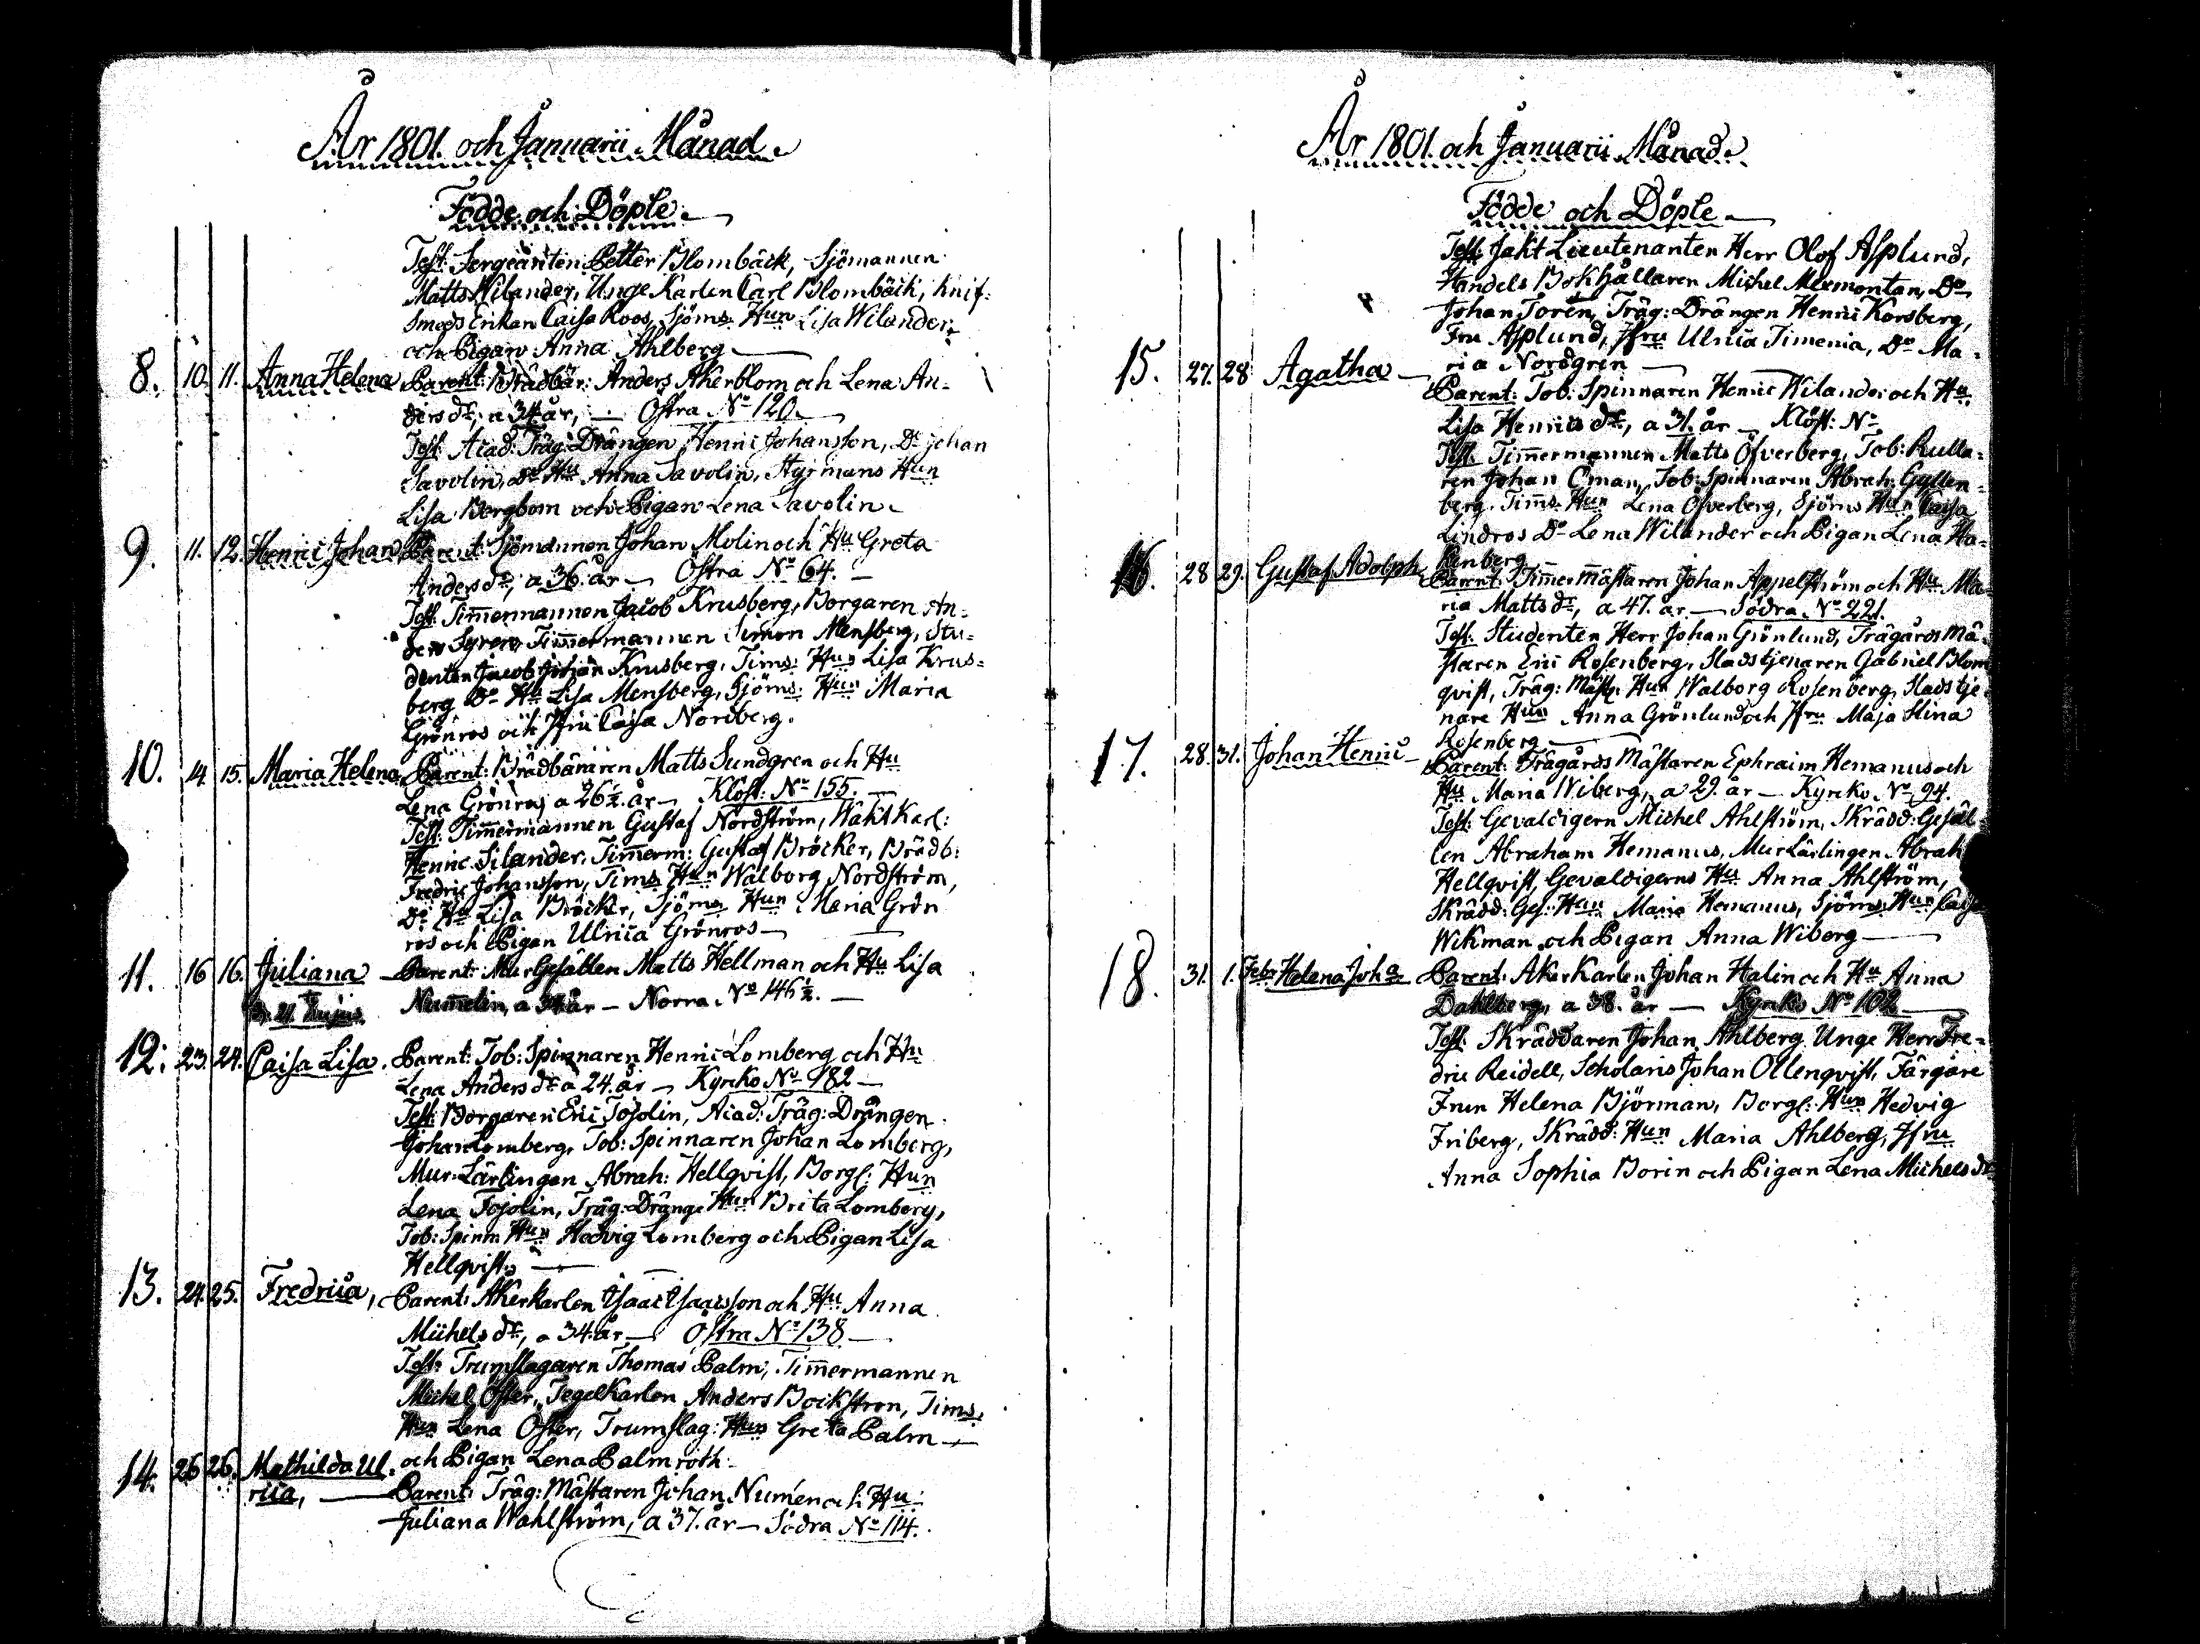 År 1801. och Januarii Månad
Födde och Döpte
Test: Sergeanten Petter Blombäck, Sjömannen
Matts Wilander, Unge Karlen Carl Blombäck, Knif-
Smeds Enkan Caisa Roos, Sjöms: Hun Lisa Wilander
och Pigan Anna Ahlberg
8. 10. 11. Anna Helena Parent: Brädbär: Anders Åkerblom och Lena An-
ders dr, a 34 år, Östra No 120
Test: Acad: Träg: Drängen Henric Johansson, Do Johan
Savolin, Do Hu Anna Savolin, Styrmans Hun
Lisa Bergbom och Pigan Lena Savolin
9. 11. 12. Henric Johan Parent: Sjömannen Johan Molin och Hu Greta
Anders dr, a 36. år Östra No 64.
Test: Timmermannen Jacob Krusberg, Borgaren An-
ders Syren, Timmermannen Simon Mensberg, Stu-
denten Jacob Johan Krusberg, Tims: Hun Lisa Krus-
berg Do Hu Lisa Mensberg, Sjöms: Hun Maria
Grönros och Jfru Caisa Nordberg.
10. 14. 15. Maria Helena Parent: Brädbäraren Matts Sundgren och Hu
Lena Grönros, a 26½. år Klost: No 155.
Test: Timmermannen Gustaf Nordström, Wakt Karl:
Henric Silander, Timmerm: Gustaf Bröcker, Brädb:
Fredric Johansson, Tims Hun Walborg Nordström,
Do Hu Lisa Bröcker, Sjöms Hun Maria Grön
ros och Pigan Ulrica Grönros
11. 16 16. Juliana Parent: Mur Gesällen Matts Hellman och Hu Lisa
Nummelin, a 34 år Norra No 146½.
12. 23. 24. Caisa Lisa. Parent: Tob: Spinnaren Henric Lomberg och Hu
Lena Anders dr a 24. år Kyrko No 182
Test: Borgaren Eric Tojolin, Acad: Träg: Drängen
Johan Lomberg, Tob: Spinnaren Johan Lomberg,
Mur-Lärlingen Abrah: Hellqvist, Borg: Hun
Lena Tojolin, Träg: Dränge Hun Brita Lomberg,
Tob: Spinn Hun Hedvig Lomberg och Pigan Lisa
Hellqvist.
13. 24. 25. Fredrica, Parent: Åkerkarlen Isaac Isaacsson och Hu Anna
Michels dr, a 34. år Östra No 138
Test: Trumslagaren Thomas Palm, Timmermannen
Michel Öster, Tegelkarlen Anders Bockström, Tims.
Hun Lena Öster, Trumslag: Hun Greta Palm
och Pigan Lena Palmroth
14. 26 26. Mathilda Ul-
rica, Parent: Träg: Mästaren Johan Numén och Hu
Juliana Wahlström, a 37. år Södra No 114.
År 1801. och Januarii Månad
Födde och Döpte
Test: Jakt Lieutenanten Herr Olof Asplund,
Handels Bokhållaren Michel Mermontan, Do
Johan Torén, Träg: Drängen Henric Korsberg,
Fru Asplund, Jfru Ulrica Timenia, Do Ma-
ria Nordgren
15. 27. 28 Agatha Parent: Tob: Spinnaren Henric Wilander och Hu
Lisa Henrics dr, a 31. år Klöst: No
Test. Timmermannen Matts Öfverberg, Tob: Rulla-
ren Johan Öman, Tob: Spinnaren Abrah: Gyllen-
berg. Timms. Hun Lena Öfverberg, Sjöms Hun Caisa
Lindros Do Lena Wilander och Pigan Lena Ha-
kenberg
16. 28 29. Gustaf Adolph Parent: Timmermästaren Johan Appelström och Hu Ma-
ria Matts dr, a 47. år Södra No 221.
Test: Studenten Herr Johan Grönlund, Trägårds Mä-
staren Eric Rosenberg, Stadstjenaren Gabriel Blom
qvist, Träg: Mäst: Hun Walborg Rosenberg, Stadstje-
nare Hun Anna Grönlund och Jfru Maja Stina
Rosenberg
17. 28. 31. Johan Henric Parent: Trägårds Mästaren Ephraim Hemanus och
Hu Maria Wiberg, a 29. år Kyrko No 94.
Test: Gevaldigern Michel Ahlström, Skrädd: Gesäl-
len Abraham Hemanus, Mur Lärlingen Abrah
Hellqvist, Gevaldigerns Hu Anna Ahlström,
Skrädd: Ges: Hun Maria Hemanus, Sjöms Hun Caisa
Wikman och Pigan Anna Wiberg
18. 31. 1. Feb: Helena Joha Parent: Åker Karlen Johan Halin och Hu Anna
Dahlberg, a 38. år Kyrko No 102
Test: Skräddaren Johan Ahlberg Unge Herr Fre-
dric Reidell, Scholaris Johan Ollenqvist, Färgare
Frun Helena Björman, Borg: Hun Hedvig
Friberg, Skrädd: Hun Maria Ahlberg, Jfru
Anna Sophia Borin och Pigan Lena Michels dr